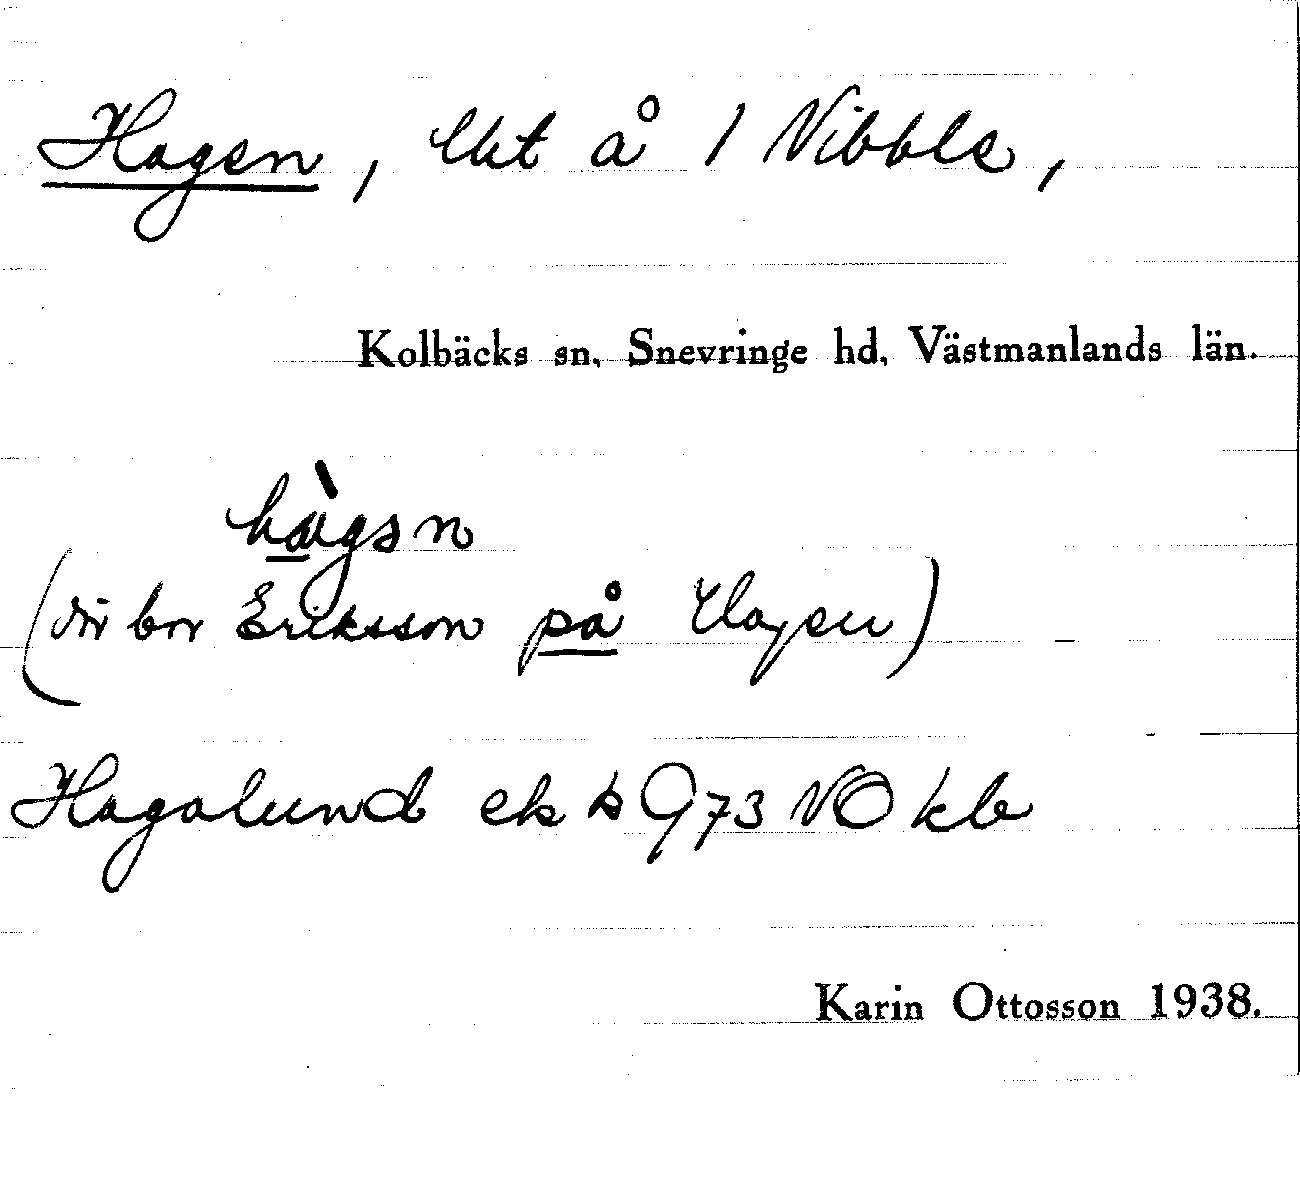 Hagen, lht å 1 Vibble,
Kolbäcks sn, Snevringe hd, Västmanlands län.
hàgən
(där bor Eriksson på Hagen)
Hagalund ek 973 NO kb
Karin Ottosson 1938.